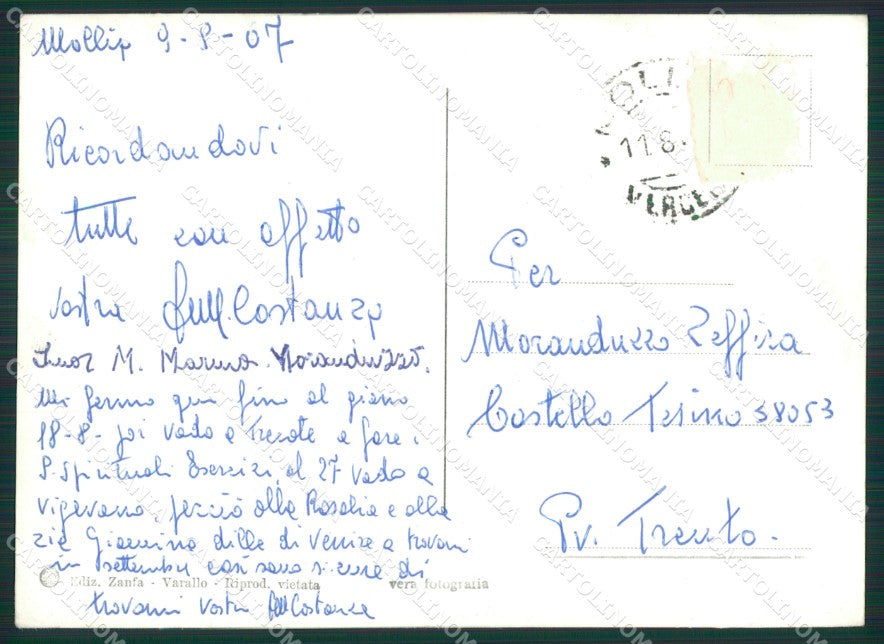 Mollia 9-8-07
Ricordandovi
tutte con affetto
vostra Suor Costanza
Suor M. Marina Moranduzzo.
Mi fermo qui fino al giorno
18-8- poi vado a Trecate a fare i
S. Spirituali Esercizi, al 27 vado a
Vigevano, perciò alla Rosalia e alla
zia Giannina dille di venire a trovarmi
in settembre così sono sicure di
trovarmi vostra Suor Costanza
Ediz. Zanfa - Varallo - Riprod. vietata
vera fotografia
MOLLI
11.8.
VERCEL
Per
Moranduzzo Zeffira
Castello Tesino 38053
Pv. Trento.
CARTOLINOMANIA